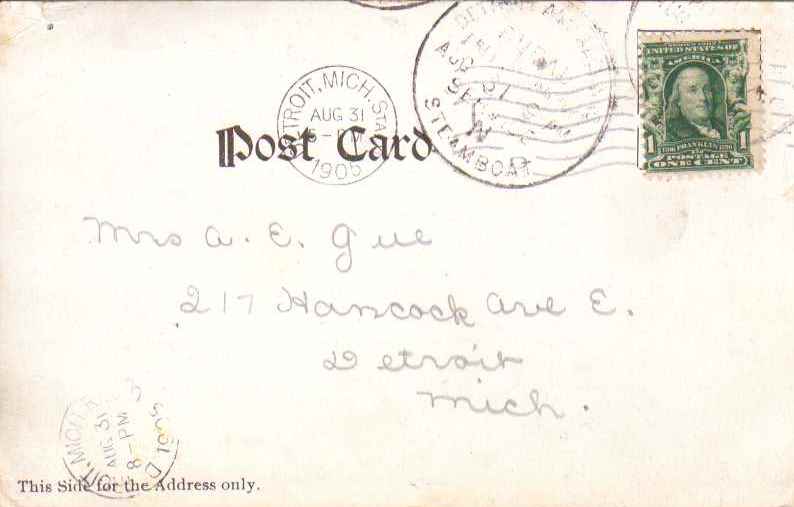 DETROIT, MICH. STA.
AUG 31
PM
1905
Post Card
DETROIT
AUG 31
STEAMBOAT
UNITED STATES OF
AMERICA
1 FRANKLIN 1
POSTAGE
ONE CENT
Mrs A. E. Gue
217 Hancock Ave E.
Detroit
Mich.
MICH
AUG 31
8-PM
1905
D
This Side for the Address only.